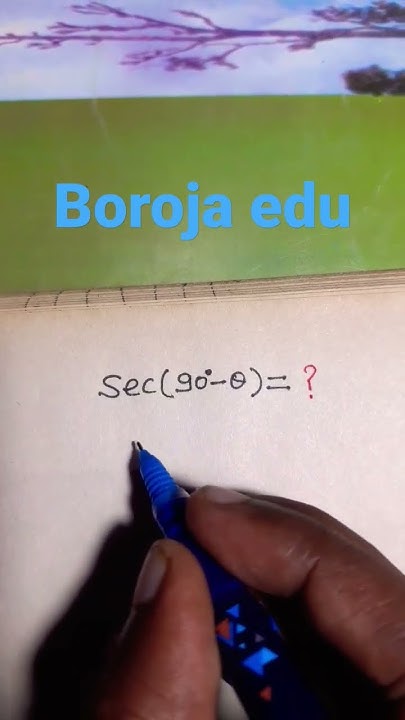 Boroja edu
Sec(90°-θ)= ?